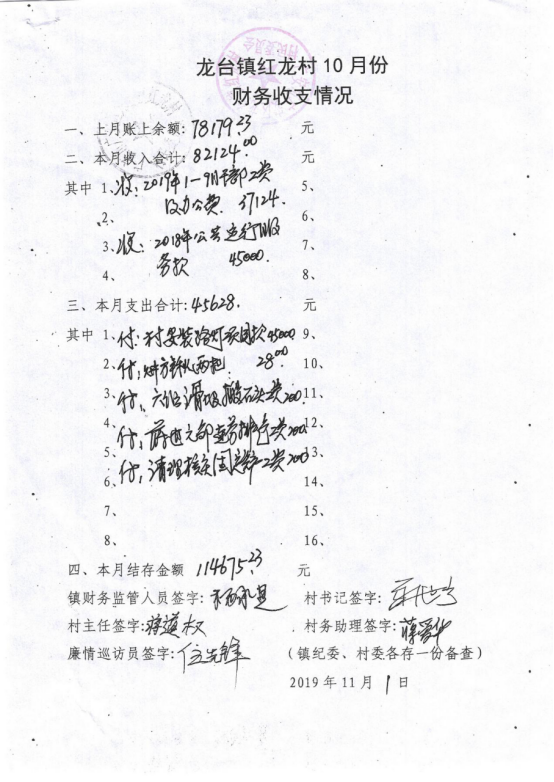 龙台镇红龙村10月份
财务收支情况
一、上月账上余额:78179.23 元
二、本月收入合计:82124.00 元
其中 1、收:2019年1-9月干部工资 5、
2、及办公费 37124. 6、
3、收:2018年公共运行服 7、
4、务款 45000. 8、
三、本月支出合计:45628. 元
其中 1、付:村安装路灯项目款45000 9、
2、付, 两把 28.00 10、
3、付, 滑坡搬石头费200 11、
4、付, 费200 12、
5、付,清理核实 工资200 13、
6、 14、
7、 15、
8、 16、
四、本月结存金额 114675.23 元
镇财务监管人员签字: 村书记签字:
村主任签字: 村务助理签字:
廉情巡访员签字: (镇纪委、村委各存一份备查)
2019年11月1日